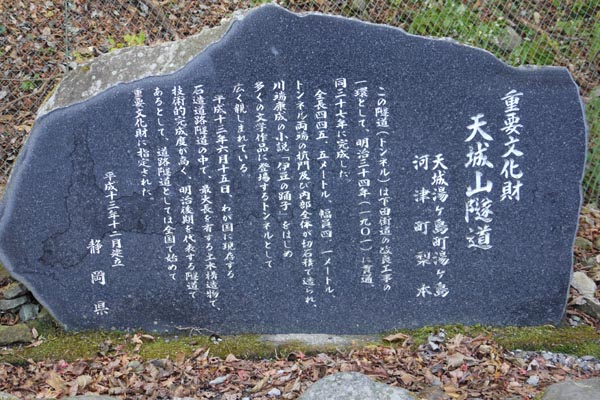 重要文化財
天城山隧道
天城湯ケ島町湯ケ島
河津町梨本
この隧道（トンネル）は下田街道の改良工事の
一環として、明治三十四年（一九〇一）に着工、
同三十七年に完成した。
全長四四五．五メートル、幅員四．一メートル、
トンネル両端の抗門及び内部全体が切石積で造られ、
川端康成の小説「伊豆の踊子」をはじめ
多くの文学作品に登場するトンネルとして
広く親しまれている。
平成十三年六月十五日、わが国に現存する
石造道路隧道の中で、最大長を有する土木構造物で、
技術的完成度が高く、明治後期を代表する隧道で
あるとして、道路隧道としては全国で始めて
重要文化財に指定された。
平成十三年十二月建立
静岡県